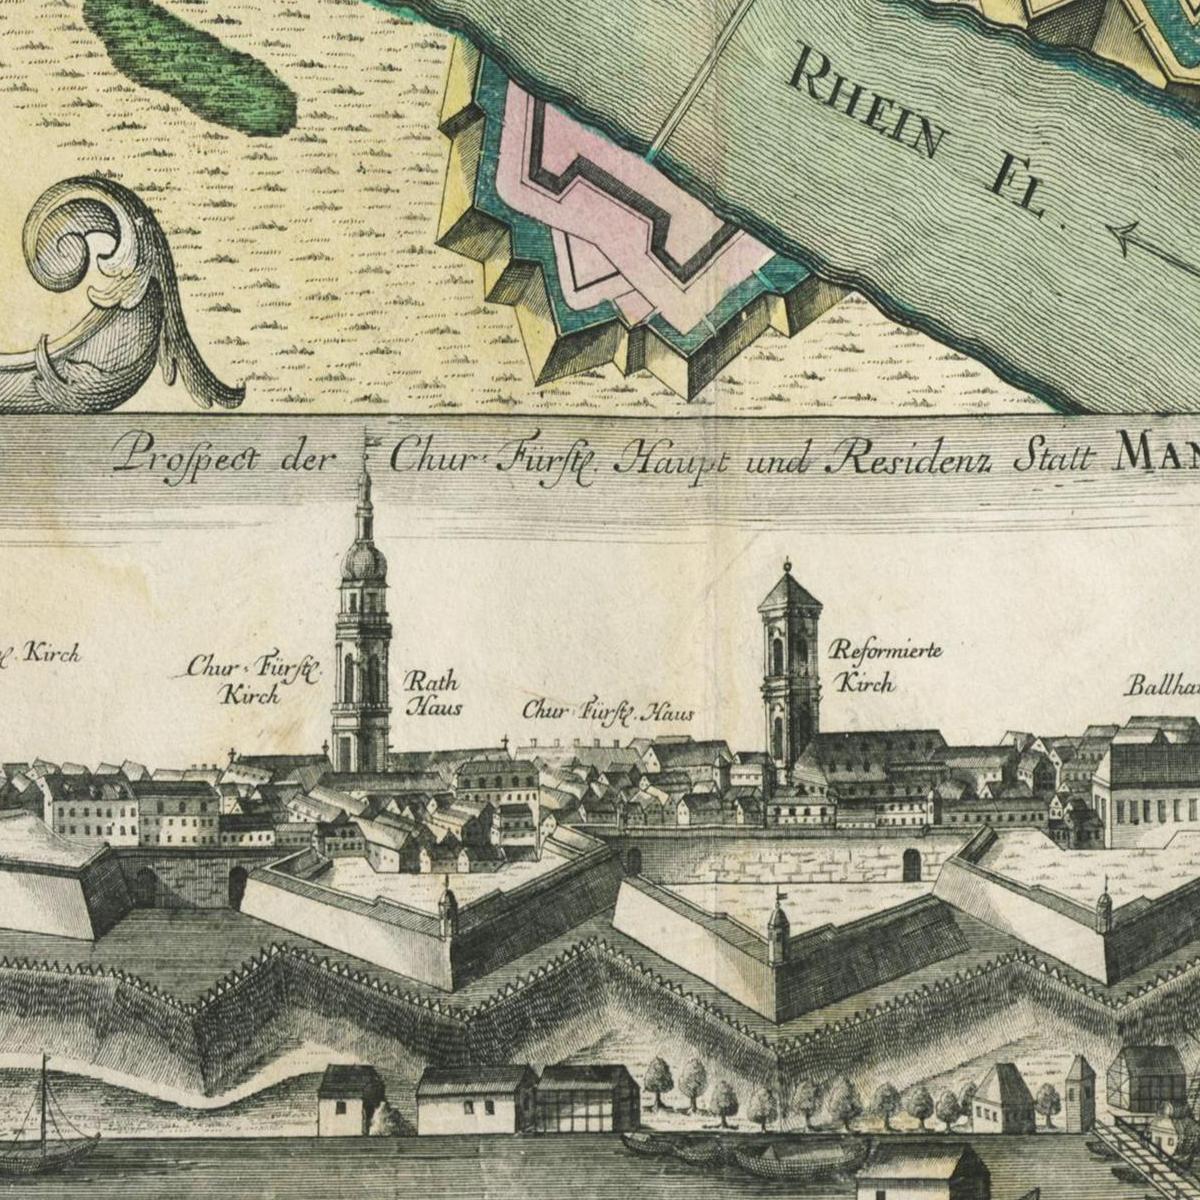 RHEIN FL.
Prospect der Chur-Fürstl. Haupt und Residenz Statt MAN
Kirch
Chur-Fürstl.
Kirch
Rath
Haus
Chur Fürstl. Haus
Reformierte
Kirch
Ballhau